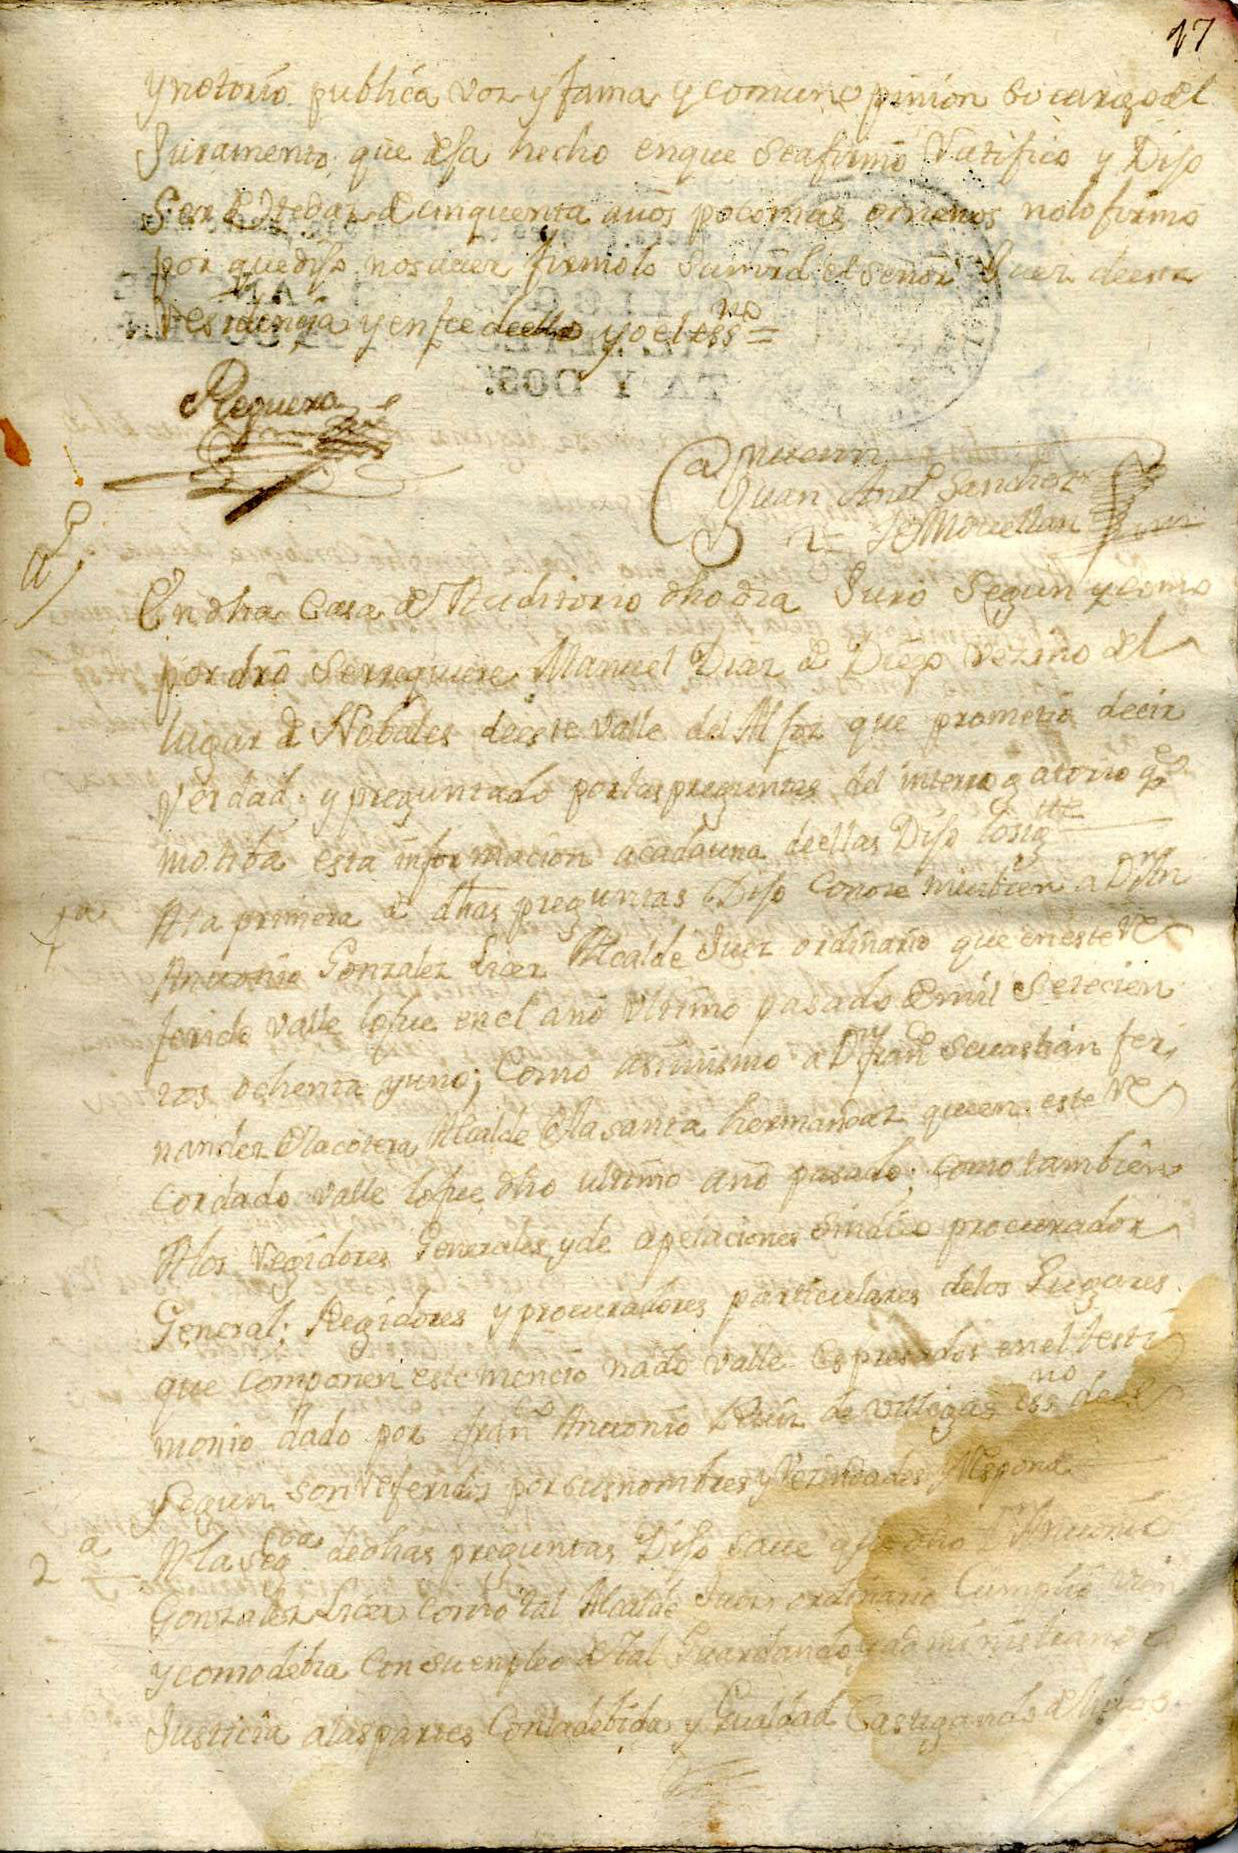 17
y notorio publica voz y fama y comun opinion so cargo del
Juramento que desa hecho enque seafirmo Ratifico y Dijo
Ser de Hedaz de cinquenta años poco mas omenos nolo firmo
por que dijo nosaver firmolo sumrd el señor Juez deesta
residencia y enfee deello yo el essno =
Reguera
Antemi
Juan Anto Sanchez
de Movellan
Endha Casa de Auditorio dho dia Juro Segun y como
por dro serrequiere Manuel Diaz de Diego Vezino del
lugar de Nobales deeste Valle del Alfoz que prometio decir
Verdad; y preguntado porlas preguntas del interrogatorio qe
motiba esta informacion acadauna deellas Dijo losigte
1a
Ala primera de dhas preguntas Dijo Conoze mui bien a Dn
Antonio Gonzalez Alcalde Juez ordinario que eneste Re
ferido Valle lofue en el año Ultimo pasado de mil Setecien
tos ochenta yuno; Como asimismo a Dn Franco Sevastian fer
nandez Delacotera Alcalde Dela santa hermandaz queen este Re
cordado Valle lofue dho ultimo año pasado; como tambien
Alos Regidores Generales, y de apelaciones Sindico procurador
General; Regidores y procuradores particulares delos Lugares
que Componen este mencionado Valle Espresados enel testi
monio dado por Franco Antonio Ruiz de Villegas essno deel
y segun son referidos por susnombres y Vezindades y Responde
2a
Ala segda dedhas preguntas Dijo save que dho Dn Antonio
Gonzalez como tal Alcalde Juez ordinario Cumplio vien
ycomodebia Con su empleo de tal Guardando y administrando
Justicia alaspartes Conladebida Ygualdad Castigando